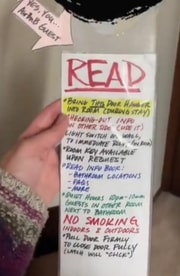 YES, YOU,
AirBnB GUEST
READ
• BRING THIS DOOR HANGER
INTO ROOM (DURING STAY)
CHECKING-OUT INFO
ON OTHER SIDE
LIGHT SWITCH ON WALL,
TO IMMEDIATE
• ROOM KEY AVAILABLE
UPON REQUEST
• READ INFO BOOK:
- BATHROOM LOCATIONS
- FAQS
- MORE
• QUIET HOURS 10pm-10am
GUESTS IN OTHER ROOM
NEXT TO BATHROOM
NO SMOKING
INDOORS & OUTDOORS
• PULL DOOR FIRMLY
TO CLOSE DOOR FULLY
(LATCH WILL "CLICK")